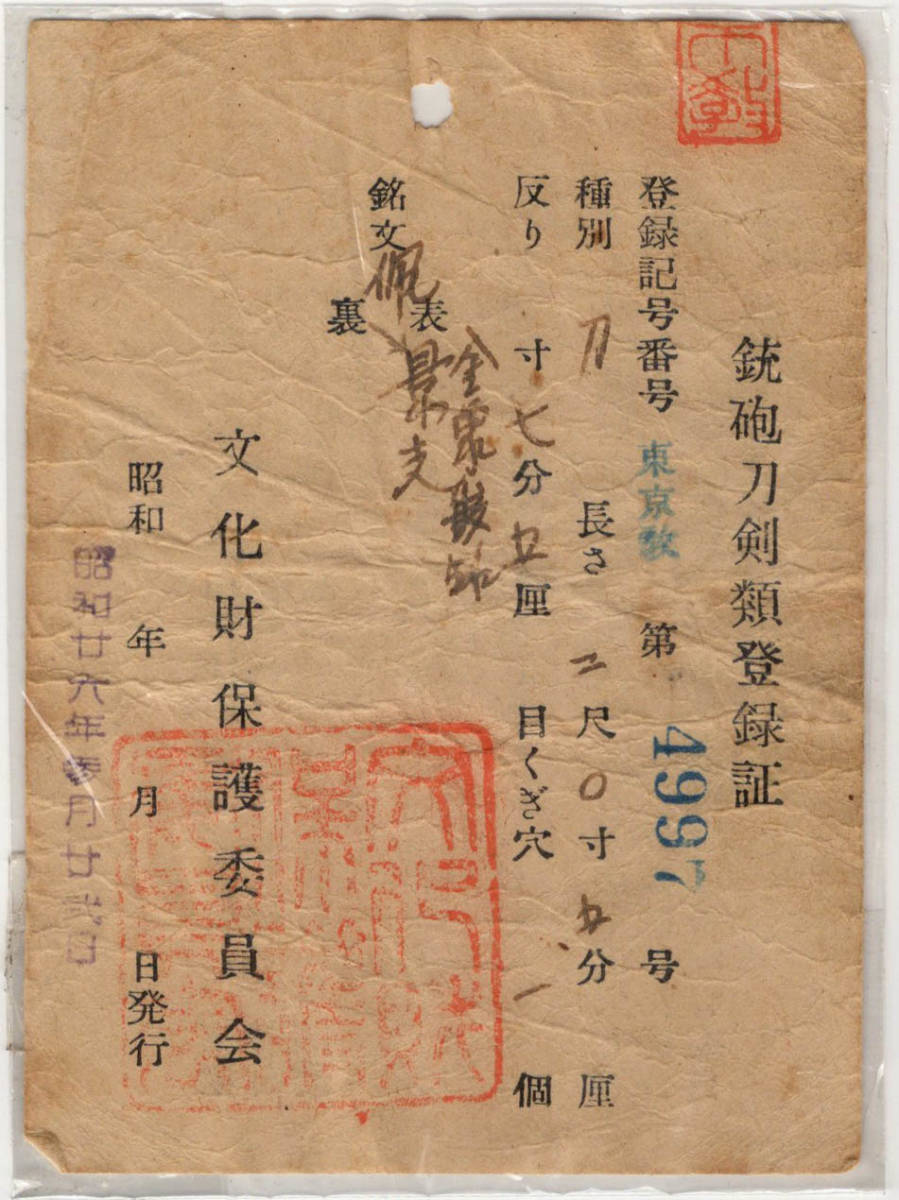 銃砲刀剣類登録証
登録記号番号 東京教 第 4997 号
種別 刀 長さ 二尺〇寸五分 厘
反り 寸七分五厘 目くぎ穴 一 個
銘文 表 金象嵌銘
佩 裏 景
文化財保護委員会
昭和 年 月 日発行
昭和廿六年参月廿弐日